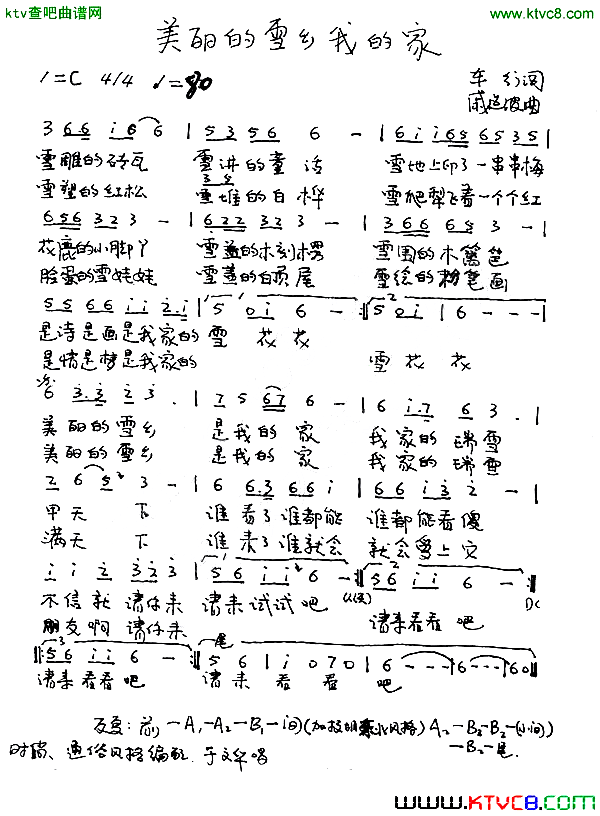 ktv查吧曲谱网
http://www.ktvc8.com
美丽的雪乡我的家
1=C 4/4 ♩=80
车行词
戚建波曲
3 6 6 i 6 6 | 5 3 5 6 6 - | 6 i i 6 5 6 5 3 5 |
雪雕的砖瓦 雪讲的童话 雪地上印了一串串梅
雪塑的红松 雪堆的白桦 雪爬犁飞着一个个红
6 5 6 3 2 3 - | 1 6 2 2 3 2 3 - | 3 6 6 6 5 3 - |
花鹿的小脚丫 雪盖的木刻楞 雪围的木篱笆
脸蛋的雪娃娃 雪盖的白顶屋 雪绘的粉笔画
5 5 6 6 i i 2. i | 5 0 i 6 - :‖ 5 0 i | 6 - - - |
是诗是画是我家的 雪 花 花
是情是梦是我家的 雪 花 花
6 3. 3 2 3 . | 7 2 5 6 7 6 - | 6 i. 7 6 3 . |
美丽的雪乡 是我的家 我家的瑞雪
美丽的雪乡 是我的家 我家的瑞雪
2 6 5 3 - | 6 6. 3 6 6 i | 6 6 i 3 2 - |
甲天下 谁看了谁都能 谁都能看傻
满天下 谁来了谁就会 就会爱上它
i i 2 3 2 3 | 5 6 i i 6 - :‖ 5 6 i i 6 - :‖
不信就请你来 请来试试吧 请来看看吧
朋友啊请你来 D.C
‖: 5 6 i i 6 - :‖ 5 6 | i 0 7 0 | 6 - - - | 6 - - - | 6 0 ‖
请来看看吧 请来看看吧
反复：前—A₁—A₂—B₁—间(加极明亮风格) A₂—B₂—B₂—(小间)
—B₂—尾
时尚、通俗风格编配. 于文华唱
www.KTVC8.com